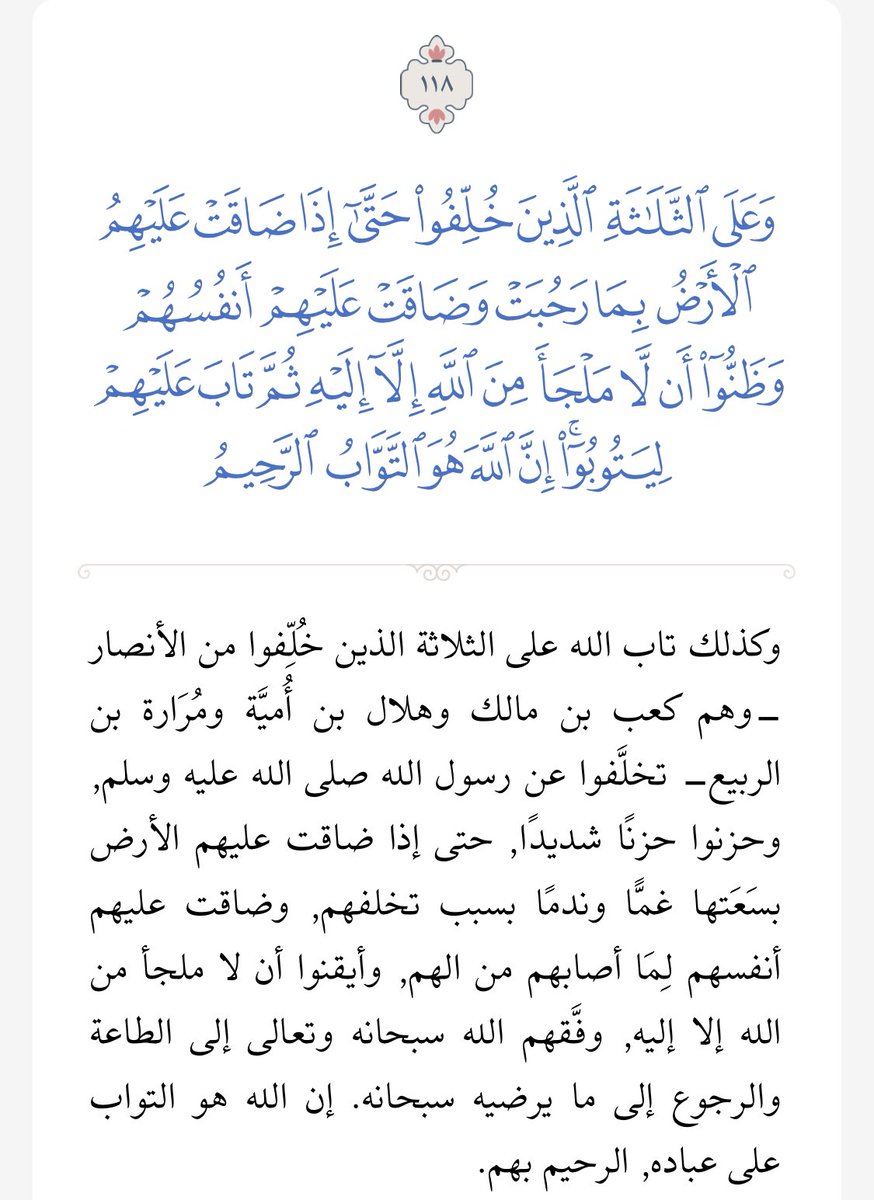 ١١٨
وَعَلَى ٱلثَّلَٰثَةِ ٱلَّذِينَ خُلِّفُوا۟ حَتَّىٰٓ إِذَا ضَاقَتْ عَلَيْهِمُ
ٱلْأَرْضُ بِمَا رَحُبَتْ وَضَاقَتْ عَلَيْهِمْ أَنفُسُهُمْ
وَظَنُّوٓا۟ أَن لَّا مَلْجَأَ مِنَ ٱللَّهِ إِلَّآ إِلَيْهِ ثُمَّ تَابَ عَلَيْهِمْ
لِيَتُوبُوٓا۟ۚ إِنَّ ٱللَّهَ هُوَ ٱلتَّوَّابُ ٱلرَّحِيمُ
وكذلك تاب الله على الثلاثة الذين خُلِّفوا من الأنصار
ـ وهم كعب بن مالك وهلال بن أُميَّة ومُرَارة بن
الربيع ـ تخلَّفوا عن رسول الله صلى الله عليه وسلم,
وحزنوا حزنًا شديدًا, حتى إذا ضاقت عليهم الأرض
بسَعَتها غمًّا وندمًا بسبب تخلفهم, وضاقت عليهم
أنفسهم لِمَا أصابهم من الهم, وأيقنوا أن لا ملجأ من
الله إلا إليه, وفَّقهم الله سبحانه وتعالى إلى الطاعة
والرجوع إلى ما يرضيه سبحانه. إن الله هو التواب
على عباده, الرحيم بهم.